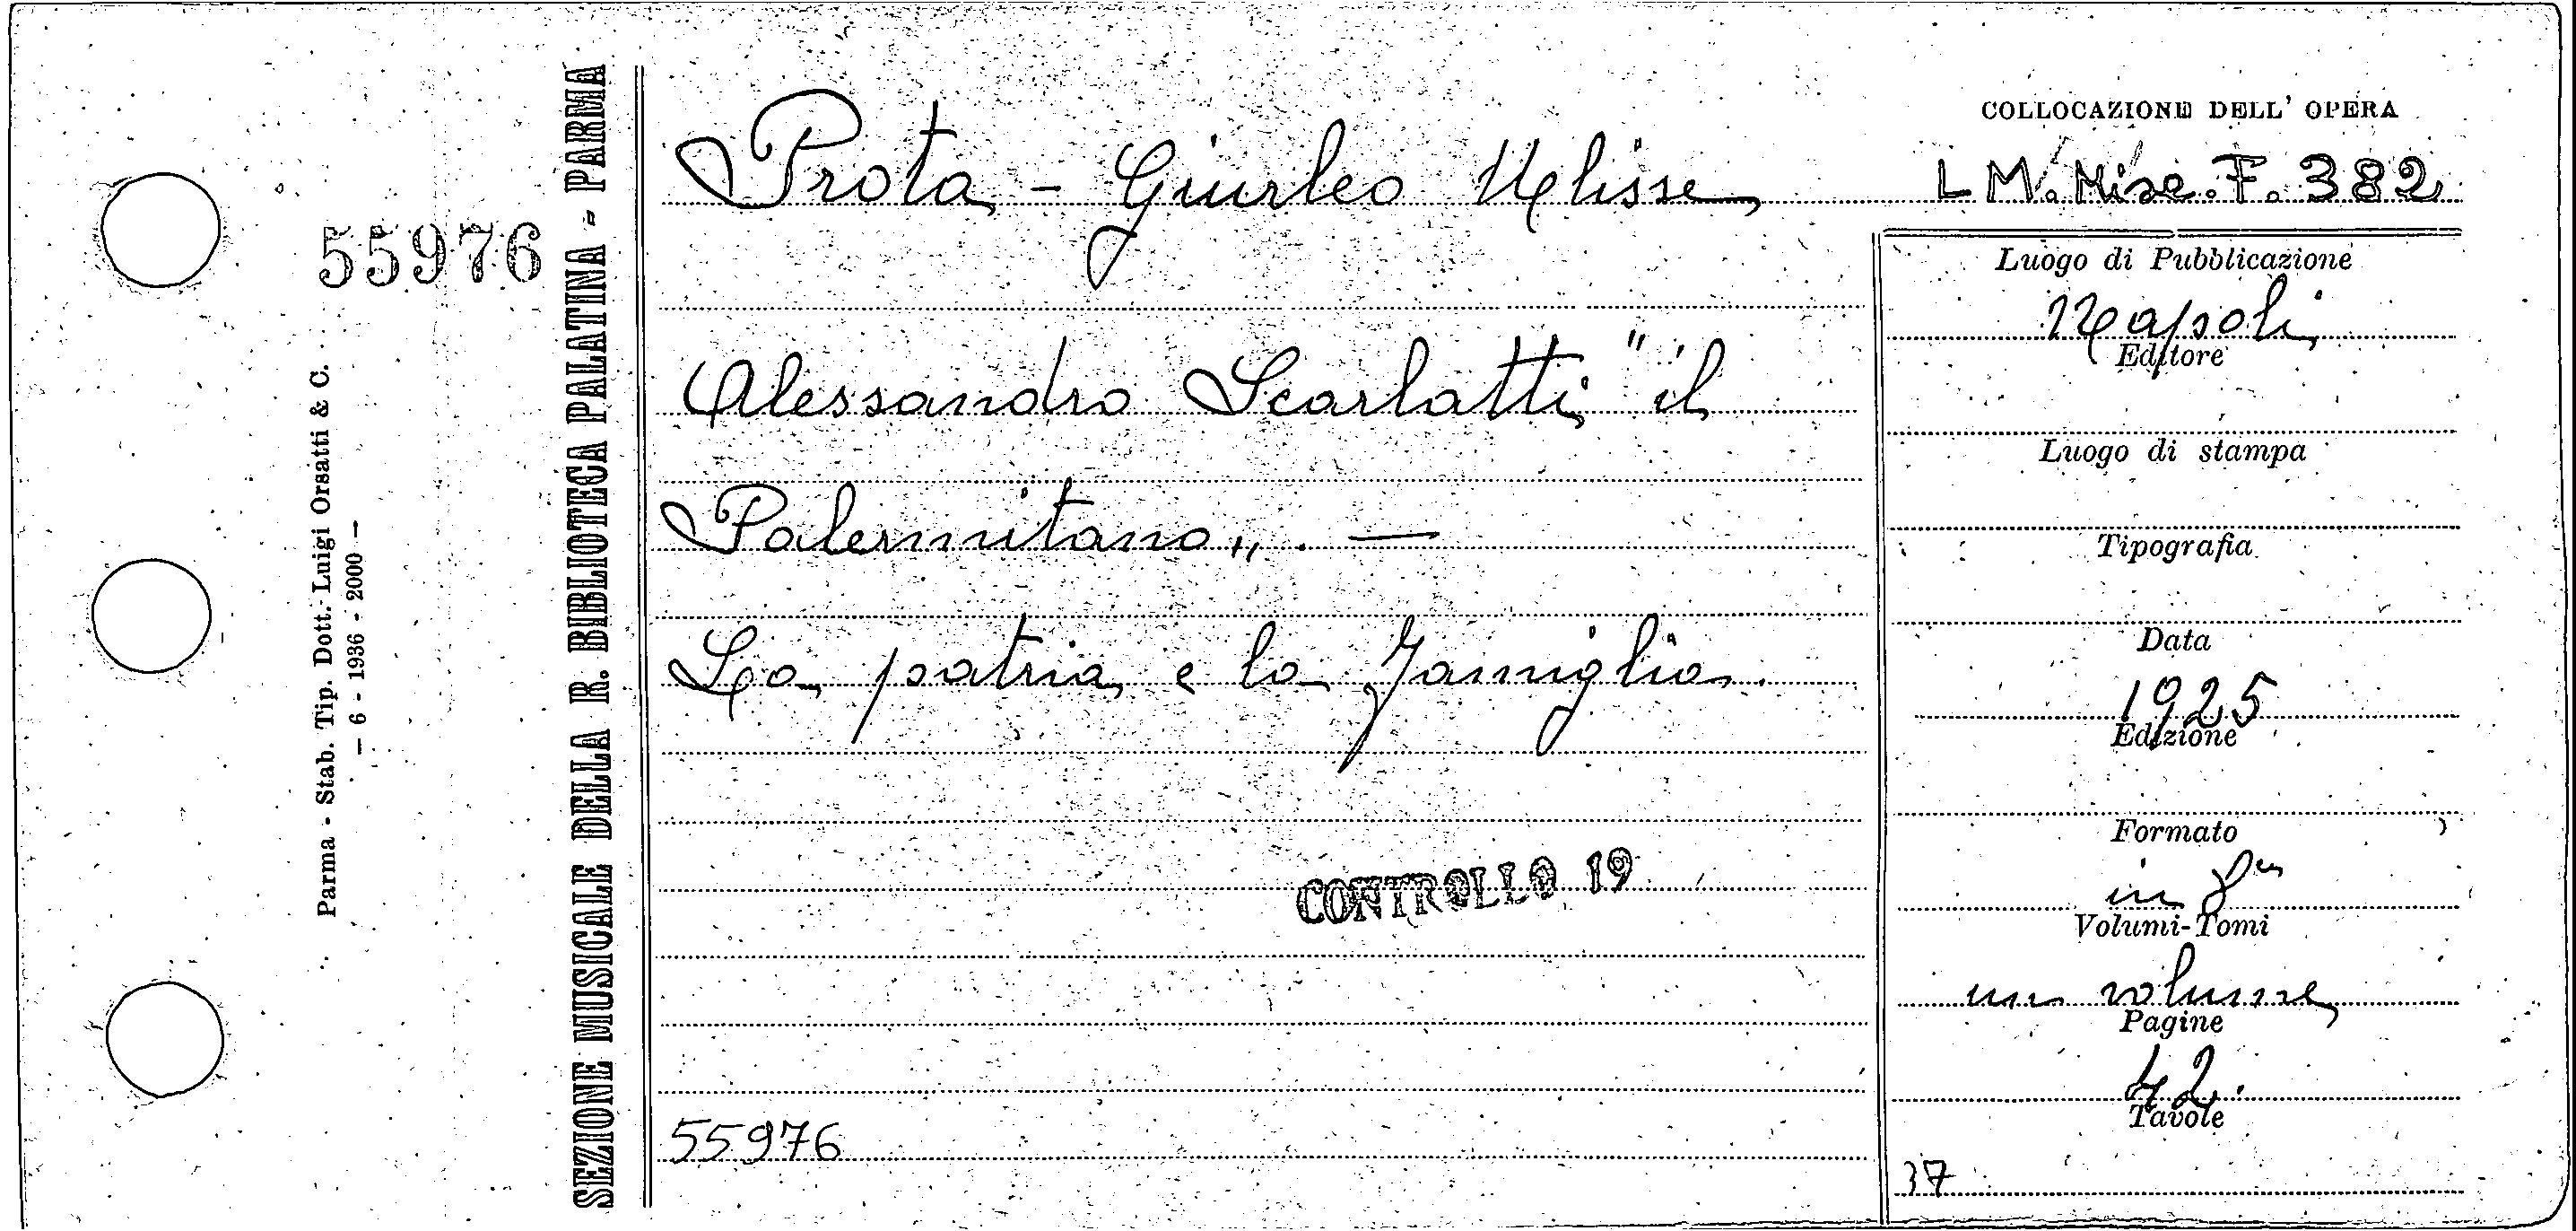 55976
Parma - Stab. Tip. Dott. Luigi Orsatti & C.
— 6 - 1936 - 2000 —
SEZIONE MUSICALE DELLA R. BIBLIOTECA PALATINA - PARMA
Prota - Giurleo Ulisse
Alessandro Scarlatti "il
Palermitano". —
La patria e la famiglia.
CONTROLLO 19
55976
COLLOCAZIONE DELL' OPERA
L M. Misc. F. 382
Luogo di Pubblicazione
Napoli
Editore
Luogo di stampa
Tipografia
Data
1925
Edizione
Formato
in 8°
Volumi-Tomi
un volume
Pagine
42.
Tavole
37